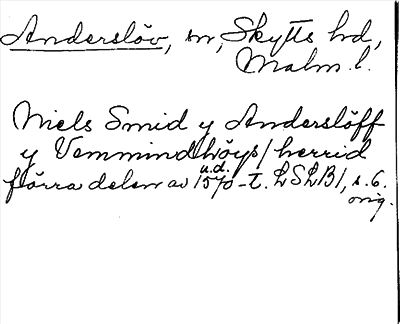 Anderslöv, sn, Skytts hd,
Malm. l.
Niels Smid y Anderslöff
y Vemmindhöys/herrid
u.d.
förra delen av 1570-t. LSLB1, s. 6.
orig.